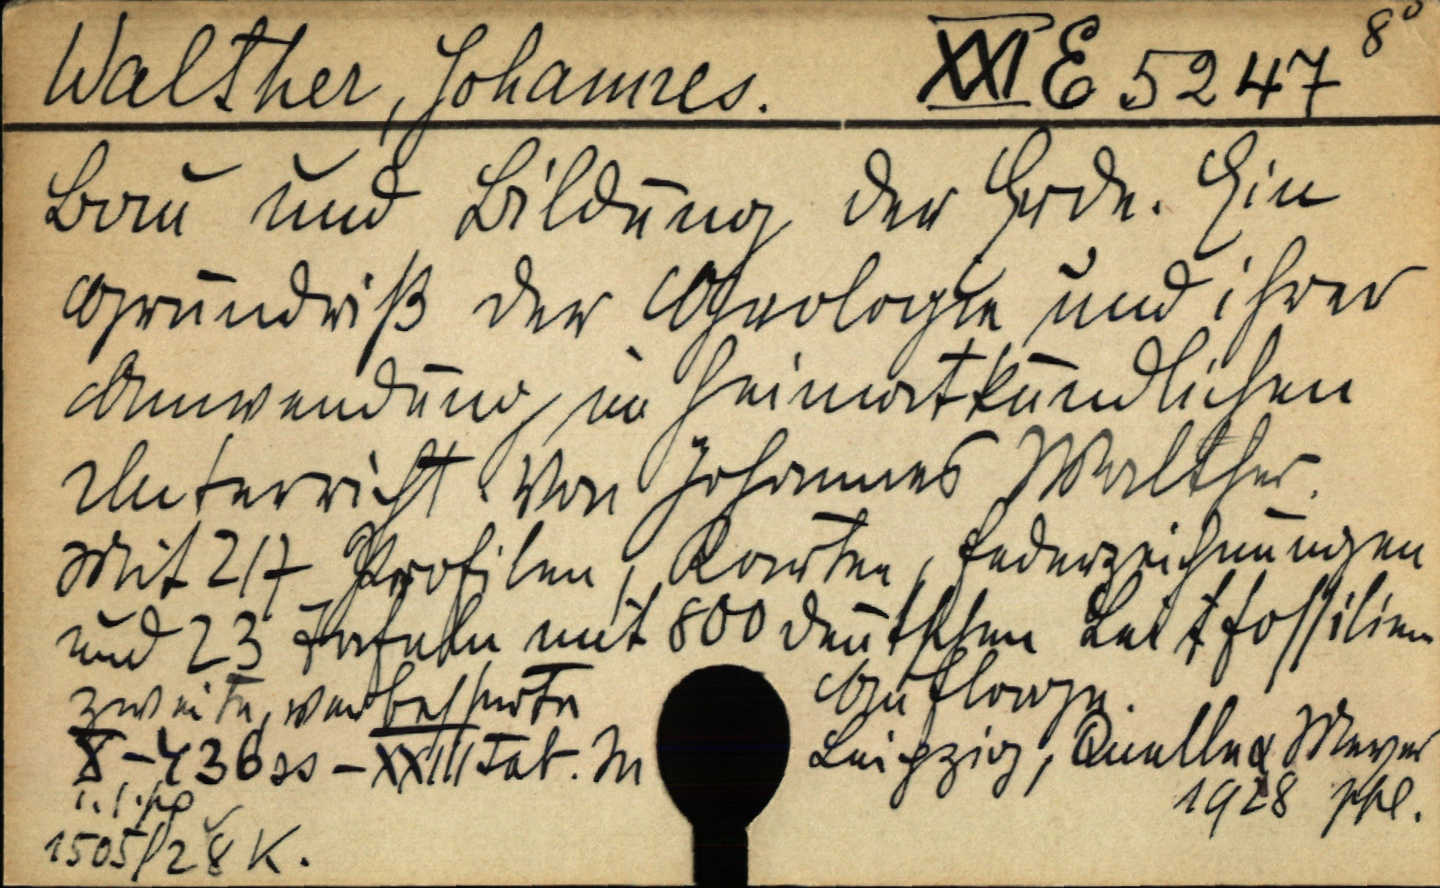 Walther, Johannes. XXI E 5247 8°
Bau und Bildung der Erde. Ein
Grundriß der Geologie und ihrer
Anwendung im heimatkundlichen
Unterricht. Von Johannes Walther.
Mit 217 Profilen, Karten, Federzeichnungen
und 23 Tafeln mit 800 deutschen Leitfossilien
zweite, verbesserte Auflage.
X-436 ss - XXIII Taf. In Leipzig, Quelle & Meyer
1928
1505/28 K.